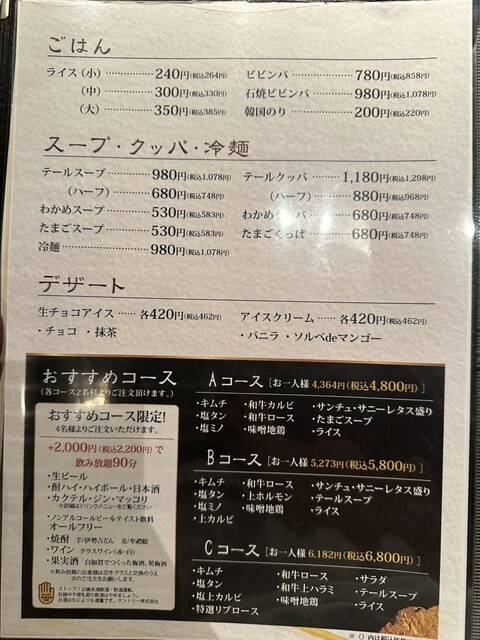 ごはん
ライス（小）…………240円(税込264円)
（中）…………300円(税込330円)
（大）…………350円(税込385円)
ビビンバ…………780円(税込858円)
石焼ビビンバ…………980円(税込1,078円)
韓国のり…………200円(税込220円)
スープ・クッパ・冷麺
テールスープ…………980円(税込1,078円)
（ハーフ）…………680円(税込748円)
わかめスープ…………530円(税込583円)
たまごスープ…………530円(税込583円)
冷麺…………980円(税込1,078円)
テールクッパ…………1,180円(税込1,298円)
（ハーフ）…………880円(税込968円)
わかめクッパ…………680円(税込748円)
たまごくっぱ…………680円(税込748円)
デザート
生チョコアイス……各420円(税込462円)
・チョコ ・抹茶
アイスクリーム……各420円(税込462円)
・バニラ ・ソルベdeマンゴー
おすすめコース
（各コース2名様よりご注文頂けます。）
おすすめコース限定!
4名様よりご注文いただけます。
+2,000円(税込2,200円)で
飲み放題90分
・生ビール
・酎ハイ・ハイボール・日本酒
・カクテル・ジン・マッコリ
※詳細はドリンクメニューをご覧ください
・ノンアルコールビールテイスト飲料
オールフリー
・焼酎 芋/伊勢吉どん 麦/年輪蔵
・ワイン グラスワイン(赤・白)
・果実酒 白加賀でつくった梅酒、
※飲み放題のお客様は空きグラスと交換のうえ
次のご注文をお願いします。
ストップ!20歳未満飲酒・飲酒運転。
妊娠中や授乳期の飲酒はやめましょう。
お酒はなによりも適量です。サントリー株式会社
Aコース［お一人様 4,364円(税込4,800円)］
・キムチ ・和牛カルビ ・サンチュ・サニーレタス盛り
・塩タン ・和牛ロース ・たまごスープ
・塩ミノ ・味噌地鶏 ・ライス
Bコース［お一人様 5,273円(税込5,800円)］
・キムチ ・和牛ロース ・サンチュ・サニーレタス盛り
・塩タン ・上ホルモン ・テールスープ
・塩ミノ ・味噌地鶏 ・ライス
・上カルビ
Cコース［お一人様 6,182円(税込6,800円)］
・キムチ ・和牛ロース ・サラダ
・塩タン ・和牛上ハラミ ・テールスープ
・塩上カルビ ・味噌地鶏 ・ライス
・特選リブロース
※( )内は税込価格